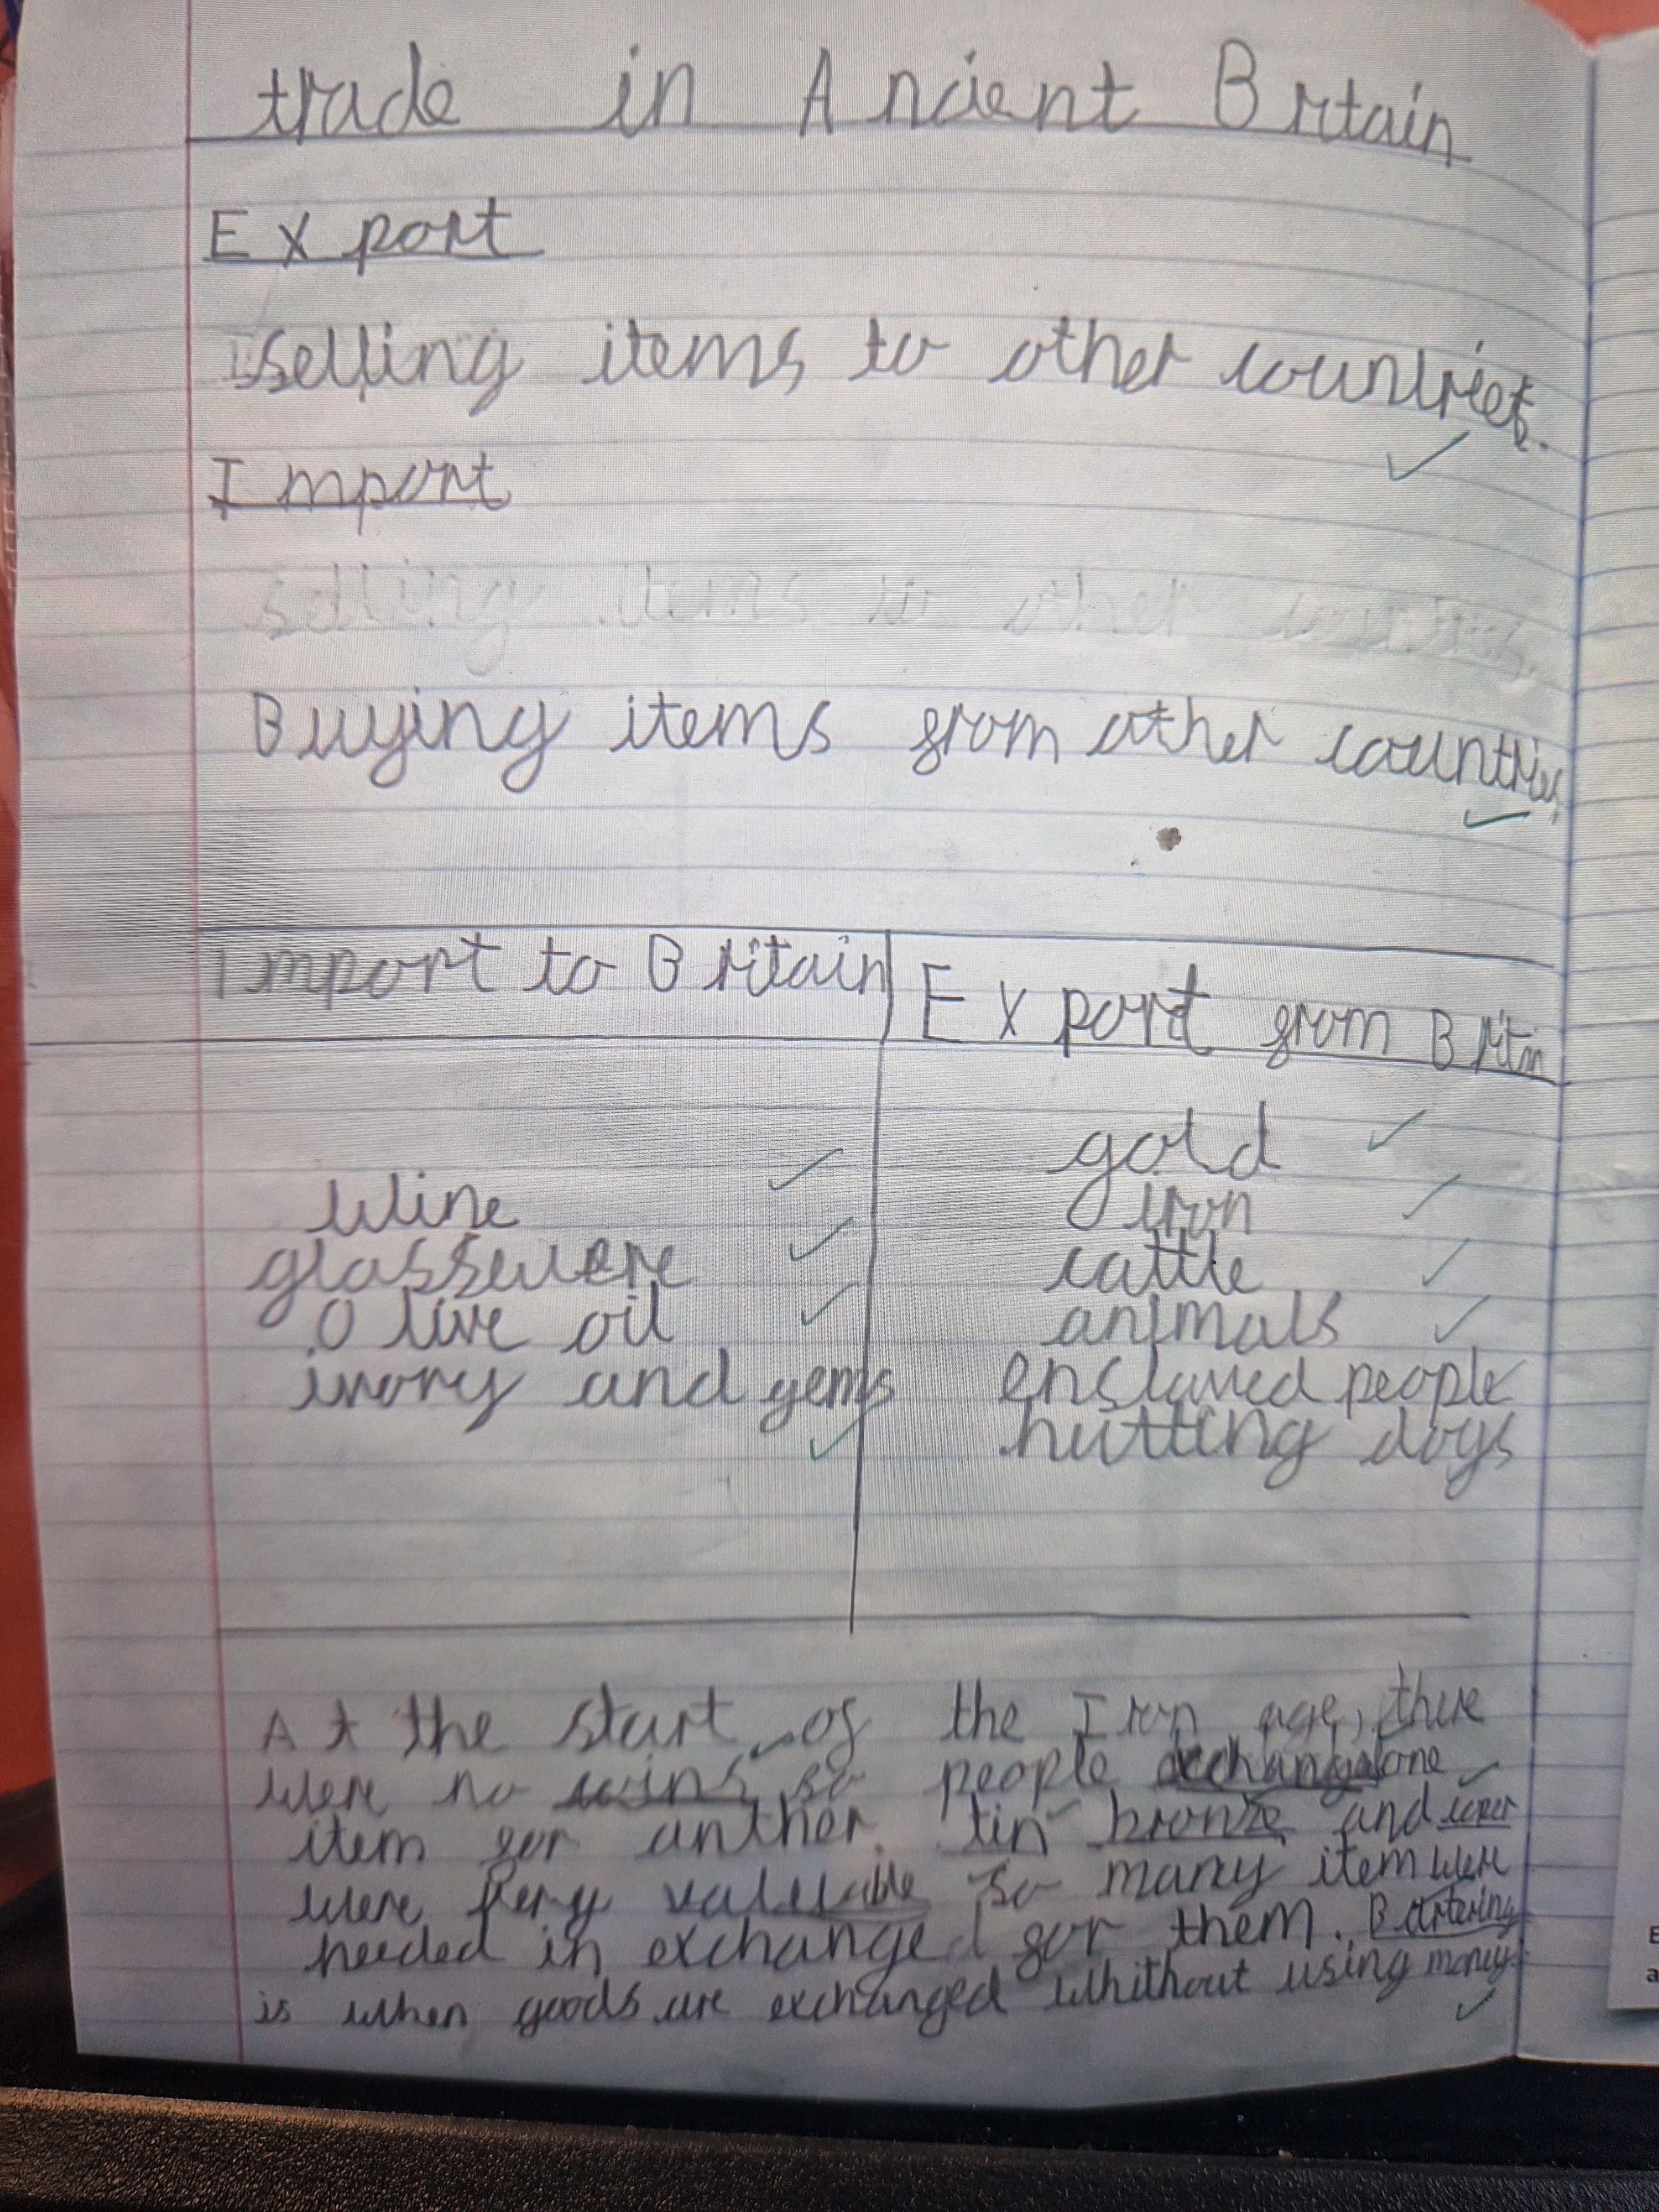 trade in Ancient Britain
Export
selling items to other countries.
Import
selling items to other countries.
Buying items from other countries.
Import to Britain
Export from Britain
Wine
glasswere
Olive oil
ivory and gems
gold
iron
cattle
animals
enslaved people
hutting dogs
At the start of the Iron age, there
were no coins so people exchange one
item for anther. tin bronze and coper
were very valuable so many item were
needed in exchanged for them. Bartering
is when goods are exchanged whithout using money.